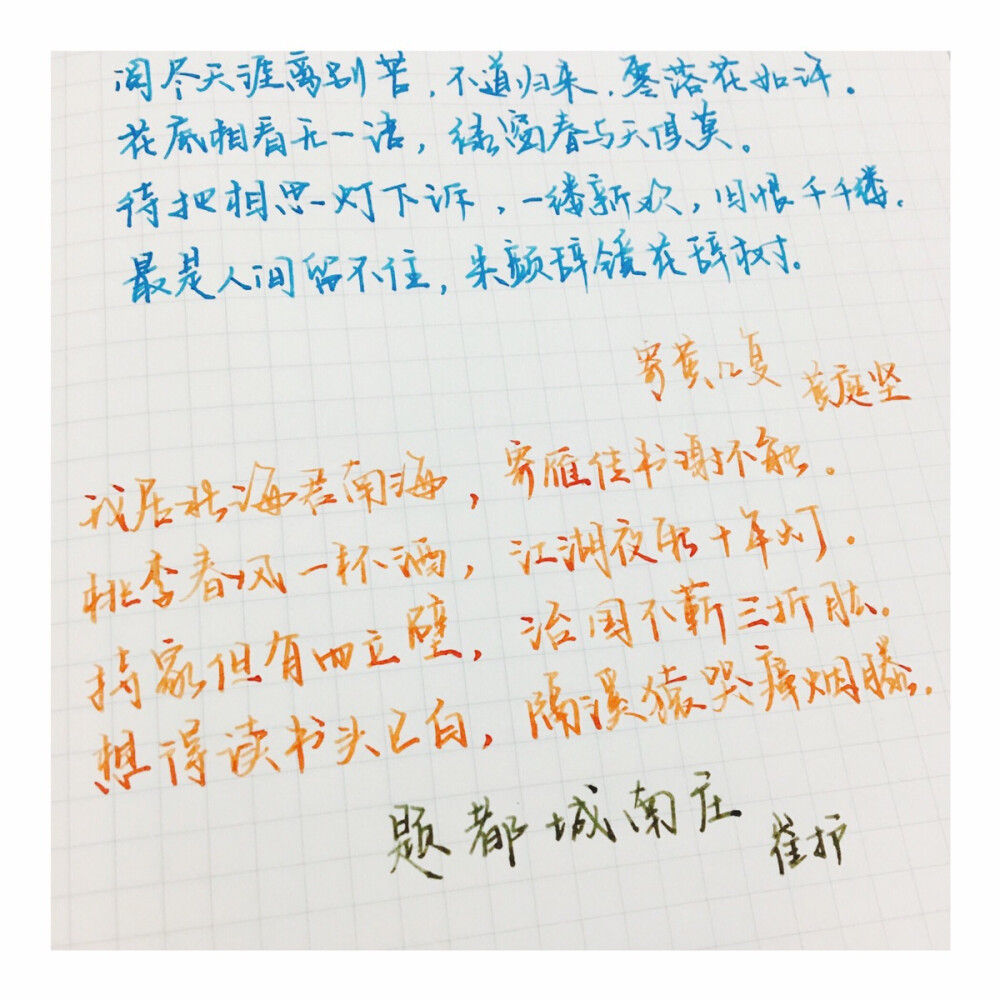 阅尽天涯离别苦，不道归来，零落花如许。
花底相看无一语，绿窗春与天俱莫。
待把相思灯下诉，一缕新欢，旧恨千千缕。
最是人间留不住，朱颜辞镜花辞树。
寄黄几复 黄庭坚
我居北海君南海，寄雁传书谢不能。
桃李春风一杯酒，江湖夜雨十年灯。
持家但有四立壁，治国不蕲三折肱。
想得读书头已白，隔溪猿哭瘴烟滕。
题都城南庄 崔护